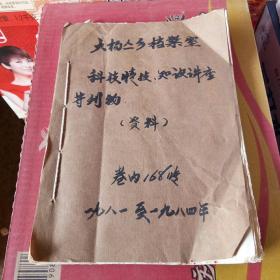 大杨公乡档案室
科技特技、知识讲座
等刊物
(资料)
卷内168收
一九八一至一九八四年